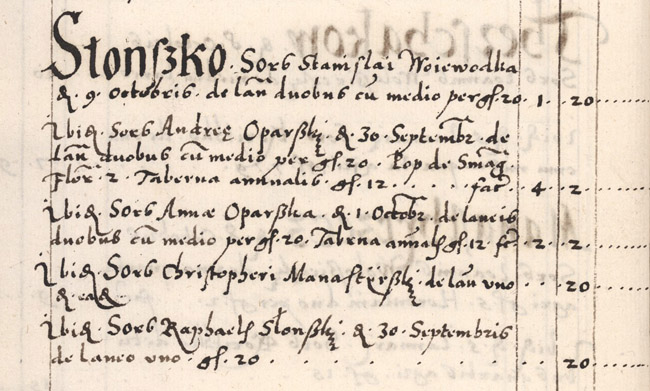 Stonszko. Sors Stanislai Woiewodka
&. 9. Octobris. de lan duobus cũ medio per gſ. 20. 1. 20
Ibid. Sors Andreę Oparsſki &. 30. Septembr. de
lan duobus cũ medio per gſ. 20. Pop de
Flor. 2. Taberna annualis. gſ. 12. facit 4. 2.
Ibid. Sors Annæ Oparsſka. &. 1. Octobr. de laneis
duobus cũ medio per gſ. 20. Taberna gſ. 12 fc 2. 2.
Ibid. Sors Christopheri Manastyrsſki de lan vno. 20
&. ead
Ibid. Sors Raphaelis Słonsſki. &. 30. Septembris
de laneo vno. gſ. 20 20